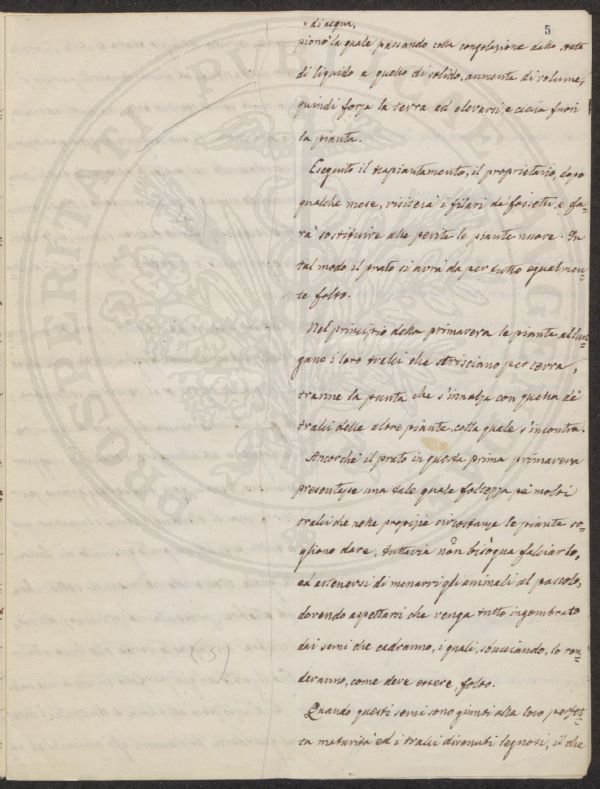 x di acqua,
5
pione la quale passando colla congelazione dallo stato
di liquido a quello di solido, aumenta di volume,
quindi forza la terra ad elevarsi, e caccia fuori
la pianta.
Eseguito il trapiantamento, il proprietario, dopo
qualche mese, visiterà i filari de' fossetti, e fa-
rà sostituire alle perite le piante nuove. In
tal modo il prato si avrà da per tutto egualmen-
te folto.
Nel principio della primavera le piante allun-
gano i loro tralci che strisciano per terra,
tranne la punta che s'innalza con quella de'
tralci delle altre piante, colla quale s'incontra.
Ancorchè il prato in questa prima primavera
presentasse una tale quale foltezza pe' molti
tralci che nelle propizie circostanze le piante so-
gliono dare, tuttavia non bisogna falciarlo,
ed astenersi di menarvi gli animali al pascolo,
dovendo aspettarsi che venga tutto ingombrato
dai semi che cadranno, i quali, sbucciando, lo ren-
deranno, come deve essere, folto.
Quando questi semi sono giunti alla loro perfet-
ta maturità ed i tralci divenuti legnosi, il che
(15)
PROSPERITATI PUBLICAE